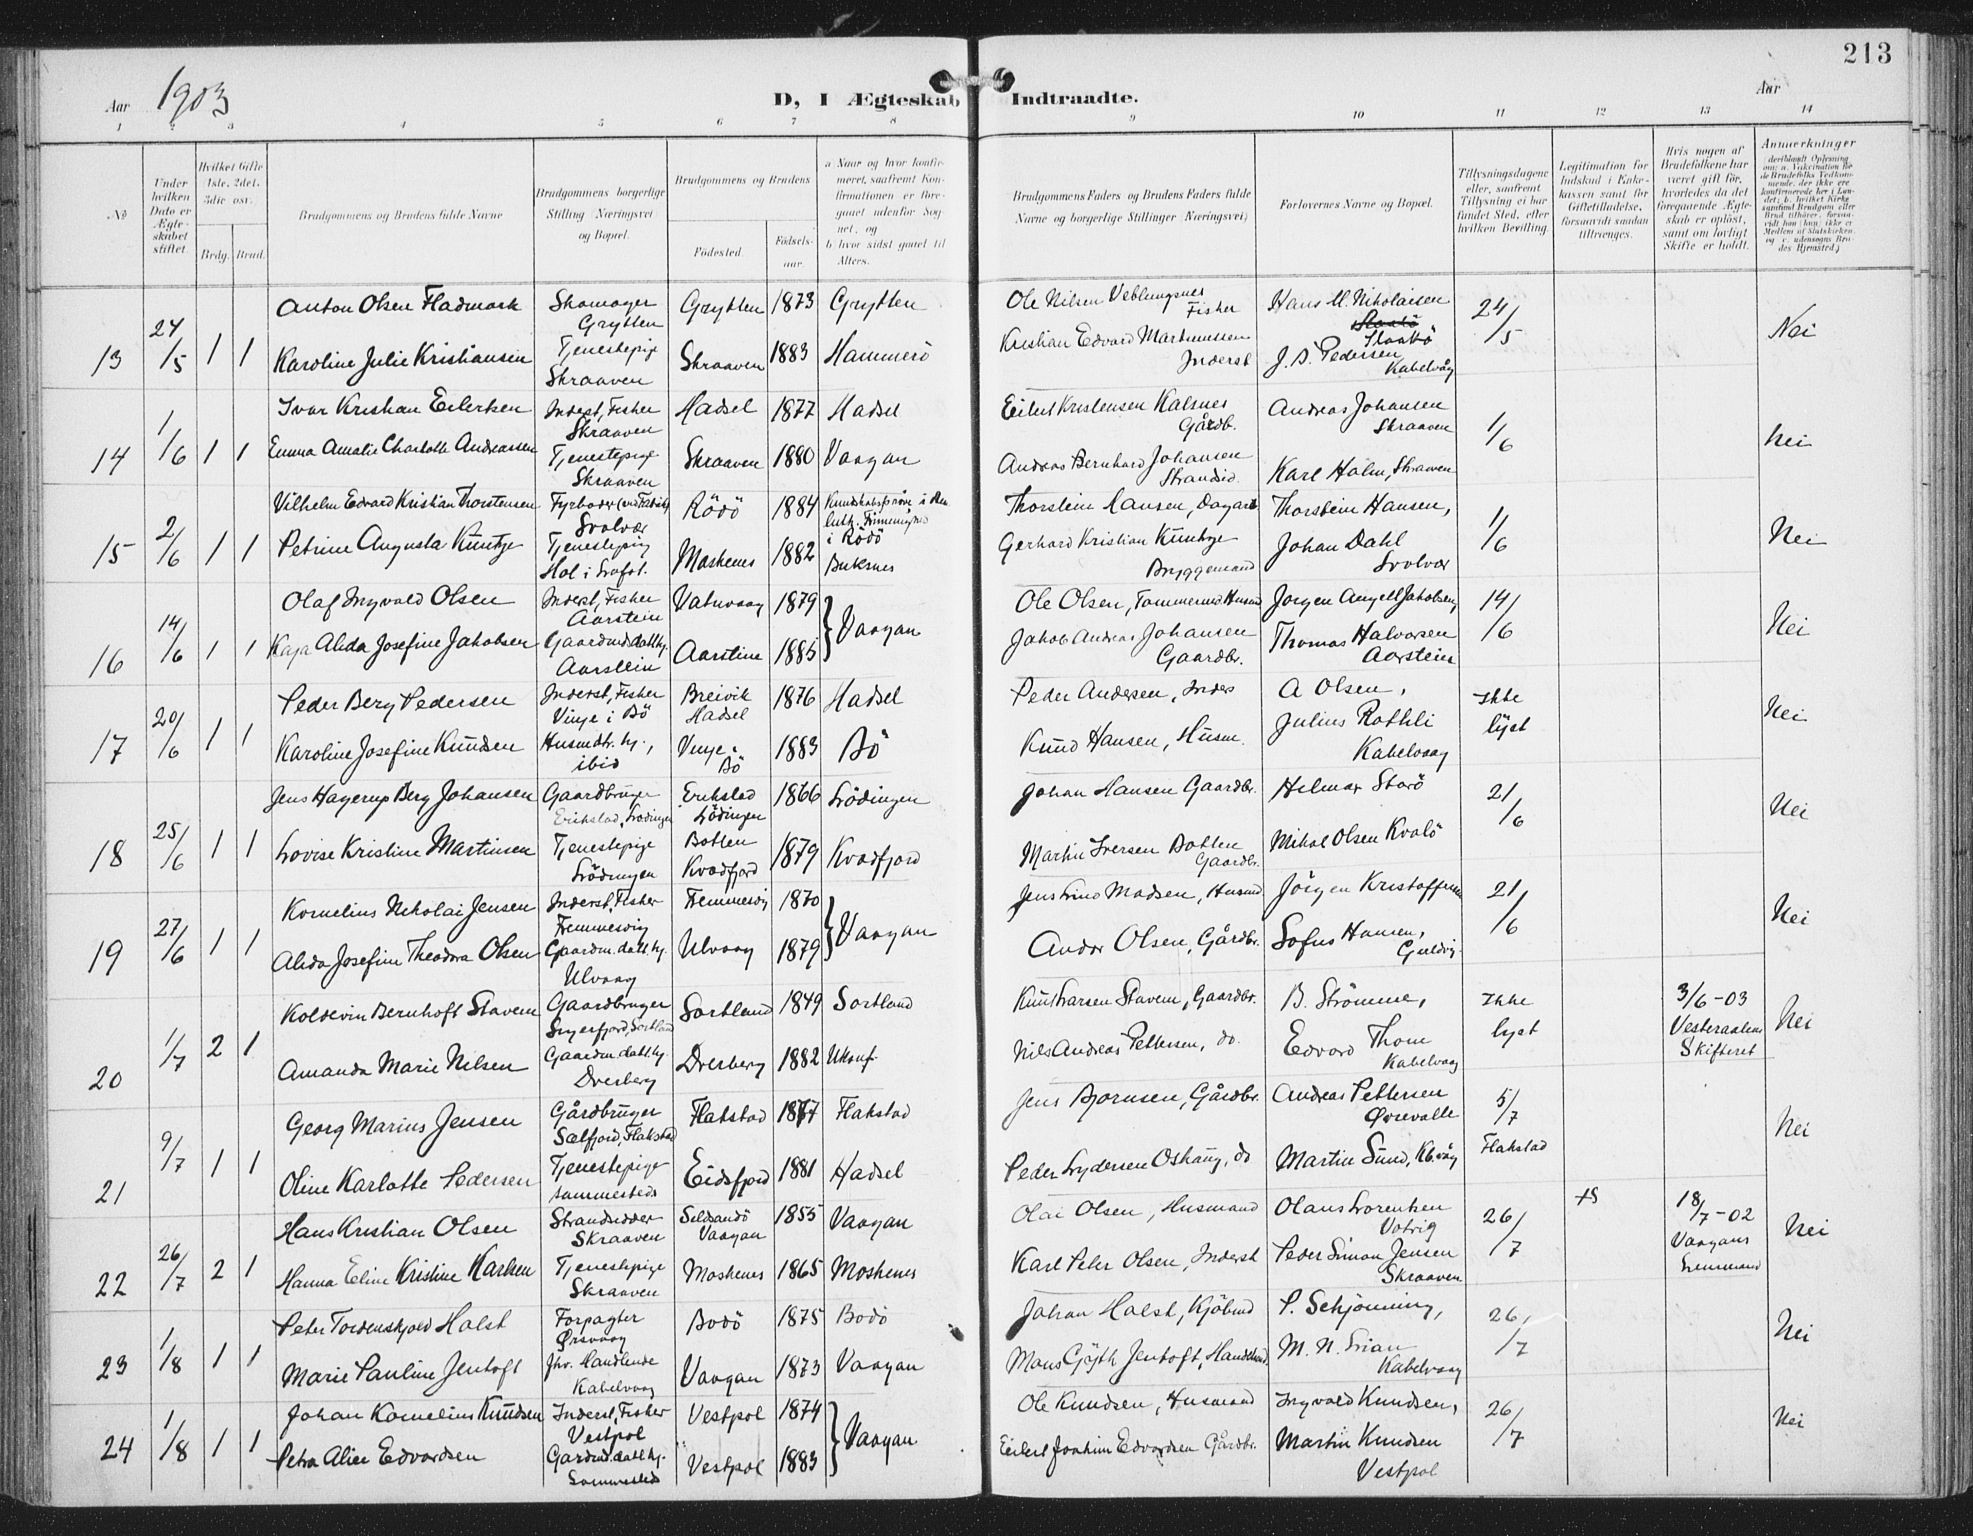 213
Aar 1903 D, I Ægteskab Indtraadte. Aar
1 2 3 4 5 6 7 8 9 10 11 12 13 14
No
Under hvilken Dato er Ægteskabet stiftet.
Hvilket Gifte 1ste, 2det, 3die osv.
Brdg. Brud.
Brudgommens og Brudens fulde Navne
Brudgommens borgerlige Stilling Næringsvei og Bopæl.
Brudgommens og Brudens
Fødested.
Fødsels-aar.
a Naar og hvor konfirmeret, saafremt Konfirmationen er foregaaet udenfor Sognet, og
b. hvor sidst gaaet til Alters.
Brudgommens Faders og Brudens Faders fulde Navne og borgerlige Stillinger Næringsvei)
Forlovernes Navne og Bopæl.
Tillysningsdagene eller, saafremt Tillysning ei har fundet Sted, efter hvilken Bevilling.
Legitimation for Indskud i Enkekassen samt for Giftetilladelse, forsaavidt saadan tiltrænges.
Hvis nogen af Brudefolkene har været gift før, hvorledes da det foregaaende Ægteskab er opløst, samt om lovligt Skifte er holdt.
Anmærkninger
13 24/5 1 1
Anton Olsen Fladmark Skomager Grytten Grytten 1873 Grytten Ole Nilsen Veblungsnes Fisher Hans M. Nikolaisen 24/5 Nei
Karoline Julie Kristiansen Tjenestepige Skraaven Skraaven 1883 Hammerö Kristian Edvard Martinussen Inderst J. D. Pedersen Kabelvåg
14 1/6 1 1
Ivar Kristian Eilertsen Inderst, Fisher Skraaven Hadsel 1877 Hadsel Eilert Kristensen Kalsnes Gårdb. Andreas Johansen Skraaven 1/6 Nei
Emma Amalie Charlotte Andreassen Tjenestepige Skraaven Skraaven 1880 Vaagan Andreas Bernhard Johansen Strandsid. Karl Holm, Skraaven
15 2/6 1 1
Vilhelm Edvard Kristian Thorstensen Fyrböder Svolvær Rödö 1884 i Rödö Thorstein Hansen, Dagarb Thorstein Hansen, 1/6 Nei
Petrine Augusta Küntze Tjenestepig Hol i Lofot. Moskenes 1882 Buksnes Gerhard Kristian Küntze Bryggemand Johan Dahl Svolvær
16 14/6 1 1
Olaf Ingvald Olsen Inderst, Fisher Aarstein Vatnvaag 1879 Vaagan Ole Olsen, Tømmermd Husmd Jørgen Angell Jakobsen, 14/6 Nei
Kaja Alida Josefine Jakobsen Gaardmd. datt. hj. Aarstein Aarstine 1885 Jakob Andreas Johansen Gaardbr. Thomas Halvorsen Aarstein
17 20/6 1 1
Peder Berg Pedersen Inderst, Fisher Vinje i Bö Breivik Hadsel 1876 Hadsel Peder Andersen, Inders A Olsen, Ikke lyst Nei
Karoline Josefine Knüdsen Husmdtr. hj., ibid Vinje Bö 1883 Bö Knüd Hansen, Husm. Julius Rothli Kabelvaag
18 25/6 1 1
Jens Hagerup Berg Johansen Gaardbruger Erikstad, Lödingen Erikstad Lödingen 1866 Lödingen Johan Hansen Gaardbr. Helmer Storö 21/6 Nei
Lovise Kristine Martinsen Tjenestepige Lödingen Botlen Kvædfjord 1879 Kvædfjord Martin Iversen Botlen Gaardbr. Mikal Olsen Kvalö
19 27/6 1 1
Kornelius Nikolai Jensen Inderst, Fisher Femmesvig Femmesvig 1870 Vaagan Jens Lind Madsen, Husmd Jörgen Kristoffersen 21/6 Nei
Alida Josefine Theodora Olsen Gaardm. datt. hj. Ulvaag Ulvaag 1879 Andor Olsen, Gårdbr. Sofus Hansen, Guldvig
20 1/7 2 1
Koldevin Bernhoft Stavem Gaardbruger Sigerfjord, Sortland Sortland 1849 Sortland Knüt Larsen Stavem, Gaardbr. B. Strömme, Ikke lyst 3/6-03 Vesteraalens Skifteret Nei
Amanda Marie Nilsen Gaardm. datt hj. Dverberg Dverberg 1882 Ukonf. Nils Andreas Pettersen, do. Edvard Thom Kabelvaag
21 9/7 1 1
Georg Marius Jensen Gårdbrüger Sælfjord, Flakstad Flakstad 1877 Flakstad Jens Bjornsen, Gårdbr. Andreas Pettersen Ørevalle 5/7 Flakstad Nei
Oline Karlotte Pedersen Tjenestepige sammesteds Eidsfjord 1881 Hadsel Peder Lydersen Oshaug, do Martin Sund, Kb.våg
22 26/7 2 1
Hans Kristian Olsen Strandsidder Skraaven Vaagan 1855 Vaagan Olai Olsen, Husmand Olaus Lorentsen Votvig 26/7 18/7-02 Vaagans Lensmand Nei
Hanna Eline Kristine Karlsen Tjenestepige Skraaven Moskenes 1865 Moskenes Karl Peter Olsen, Inderst Peder Simon Jensen Skraaven
23 1/8 1 1
Peter Tordenskjold Holst Forpagter Ørsvaag Bodö 1875 Bodö Johan Holst, Kjöbmd P. Schjönning, 26/7 Nei
Marie Pauline Jentoft Fhv. Handlende Kabelvaag Vaagan 1873 Vaagan Mons Gjøth Jentoft, Handelsmd. M. N. Lian Kabelvaag
24 1/8 1 1
Johan Kornelius Knüdsen Inderst, Fisher Vestpol Vestpol 1874 Vaagan Ole Knudsen, Husmand Ingvald Knudsen, 26/7 Nei
Petra Alice Edvardsen Gardmd. datt hj. Sammesteds Vestpol 1883 Eilert Joakim Edvardsen Gårdbr. Martin Knudsen Vestpol